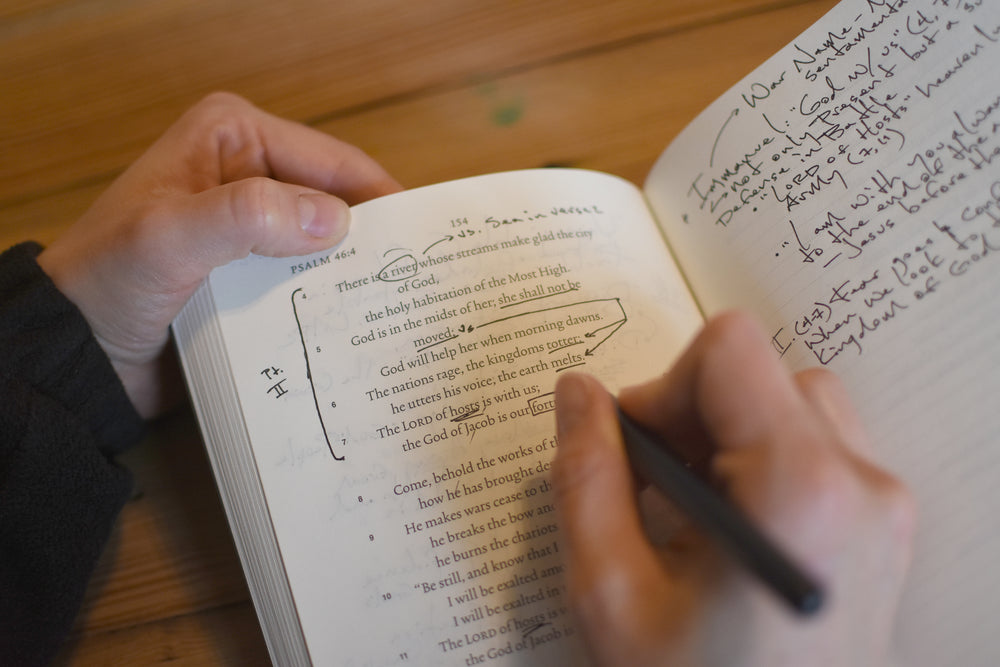 154
vs. Sea in verse 2
PSALM 46:4
4 There is a river whose streams make glad the city
of God,
the holy habitation of the Most High.
5 God is in the midst of her; she shall not be
moved;
God will help her when morning dawns.
6 The nations rage, the kingdoms totter;
he utters his voice, the earth melts.
7 The LORD of hosts is with us;
the God of Jacob is our
Pt.
II
8 Come, behold the works of
how he has brought
9 He makes wars cease to
he breaks the bow and
he burns the chariots
10 "Be still, and know that I
I will be exalted
I will be exalted in
11 The LORD of hosts is
the God of Jacob is
War Name
Immanuel: "God w/ us" (4, 7
not only present but a
Defense in Battle
"LORD of Hosts" heaven
Army (7, 11)
"I am with you
to the end of the
- Jesus before
I. (4-7) Fear
When we look to
Kingdom of God